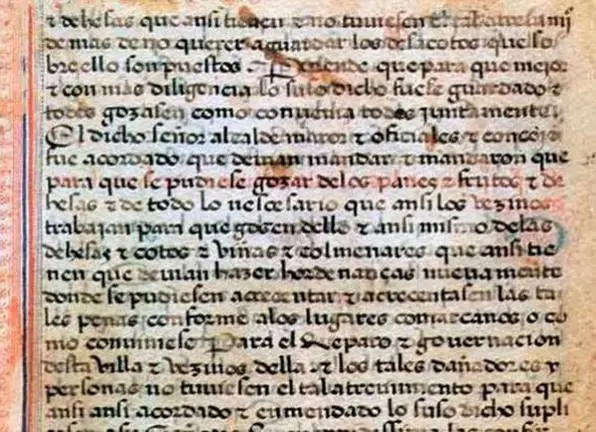 τ dehesas que ansi tienen τ no tuuiesen el tal atreuimi
de mas de no querer aguardar los desacotos que so
bre ello son puestos Porende que para que mejor
τ con mas diligencia lo suso dicho fuese guardado τ
todos gozasen como conuenia todos juntamente
El dicho señor alcalde mayor τ oficiales τ concejo
fue acordado que deuian mandar τ mandaron que
para que se pudiese gozar delos panes τ frutos τ de
hesas τ de todo lo nescesario que ansi los vezinos
trabajan para que gosen dello τ ansi mismo delas
dehesas τ cotos τ viñas τ colmenares que ansi tie
nen que deuian hazer hordenanças nueuamente
donde se pudiesen acrecentar τ acrecentasen las ta
les penas conforme alos lugares comarcanos o co
mo conuiniese Para el Reparo τ gouernacion
desta villa τ vezinos della τ los tales dañadores y
personas no tuuiesen el tal atreuimiento para que
ansi ansi acordado τ enmendado lo suso dicho supli